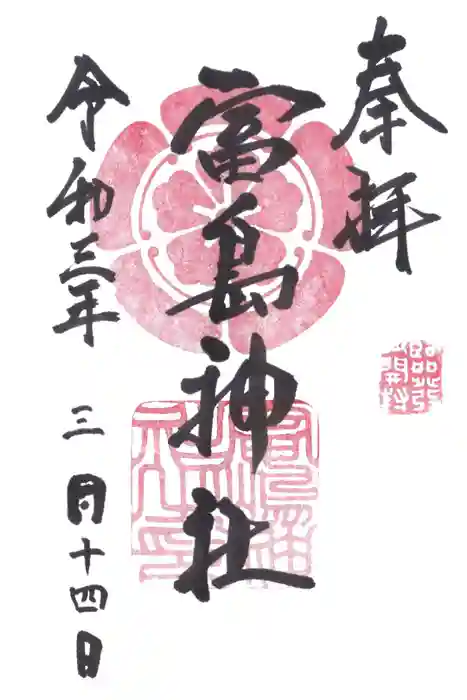 奉拝
富島神社
令和三年
三月十四日